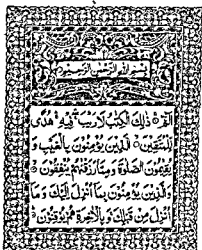 بسم الله الرحمن الرحيم
الٓمٓ ذٰلِكَ الْكِتٰبُ لَا رَيْبَ فِيْهِ هُدًى
لِّلْمُتَّقِيْنَ الَّذِيْنَ يُؤْمِنُوْنَ بِالْغَيْبِ وَ
يُقِيْمُوْنَ الصَّلٰوةَ وَمِمَّا رَزَقْنٰهُمْ يُنْفِقُوْنَ
وَالَّذِيْنَ يُؤْمِنُوْنَ بِمَا اُنْزِلَ اِلَيْكَ وَمَا
اُنْزِلَ مِنْ قَبْلِكَ وَبِالْاٰخِرَةِ هُمْ يُوْقِنُوْنَ